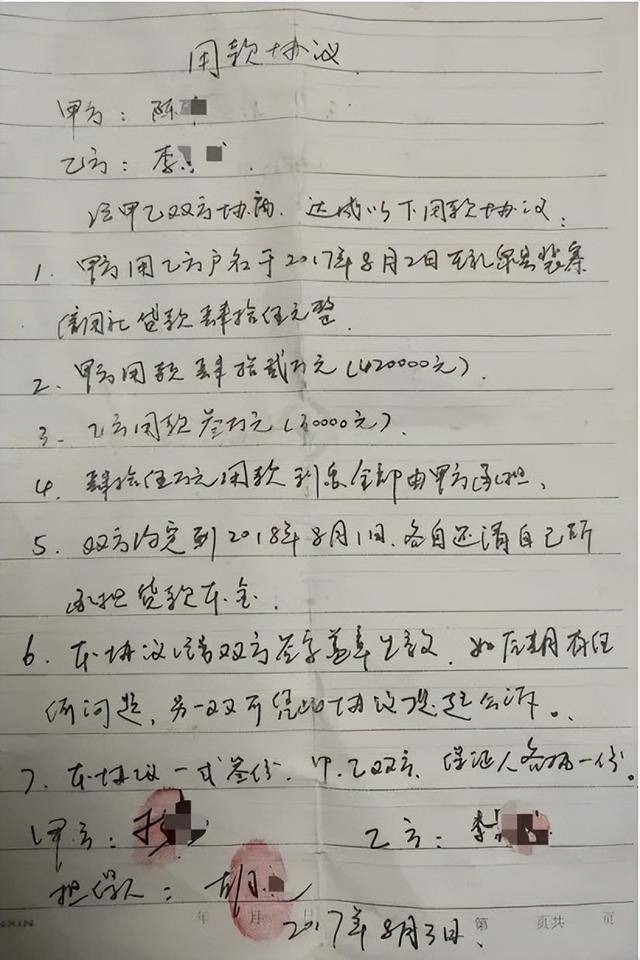 用款协议
甲方：陈
乙方：李
经甲乙双方协商，达成以下用款协议：
1、甲方用乙方户名于2017年8月2日在礼泉县裴寨
信用社贷款肆拾伍元整.
2、甲方用款肆拾贰万元(420000元).
3、乙方用款叁万元(30000元).
4、肆拾伍万元用款利息全部由甲方承担、
5、双方约定到2018年8月1日、各自还清自己所
承担贷款本金.
6、本协议经双方签字盖章生效，如后期有任
何问题，另一双可凭此协议提起公诉。
7、本协议一式叁份，甲、乙双方、保证人各执一份。
甲方： 乙方：李
担保人：胡
年 月 日 第 页共 页
2017年8月3日、